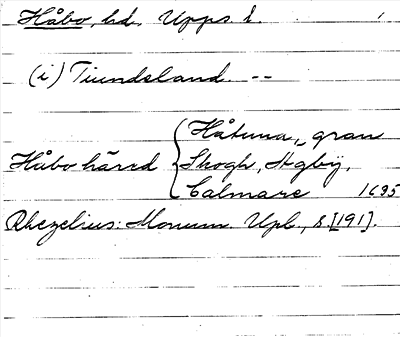 Håbo, hd, Upps. l.
(i) Tiundaland. --
Håtuna, gran
Håbo härrd { Skogh, Hgbÿ,
Calmare 1635
Rhezelius: Monum. Upl., s. [191].